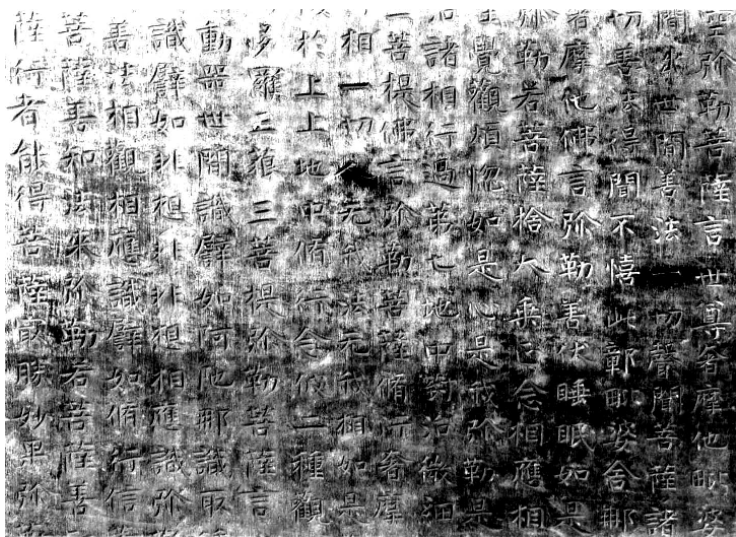 弥勒菩薩言世尊奢摩他毗婆
間出世間善法一切聲聞菩薩諸
切善法得聞不憘此鄣毗婆舍那
奢摩他佛言弥勒善伏睡眠如是
弥勒若菩薩捨大乘法念相應相
覺觀煩惚如是心是我弥勒是
諸相行過第七地中對治微細
菩提佛言弥勒菩薩脩行奢摩
相一切人无我法无我相如是
於上上地中脩行念彼二種觀
多羅三藐三菩提弥勒菩薩言
動器世間識譬如阿陁那識取
識譬如非想非非想相應識弥
善法相觀相應識譬如脩行信
菩薩善知法來弥勒若菩薩善
薩行者能得菩薩最勝妙果弥